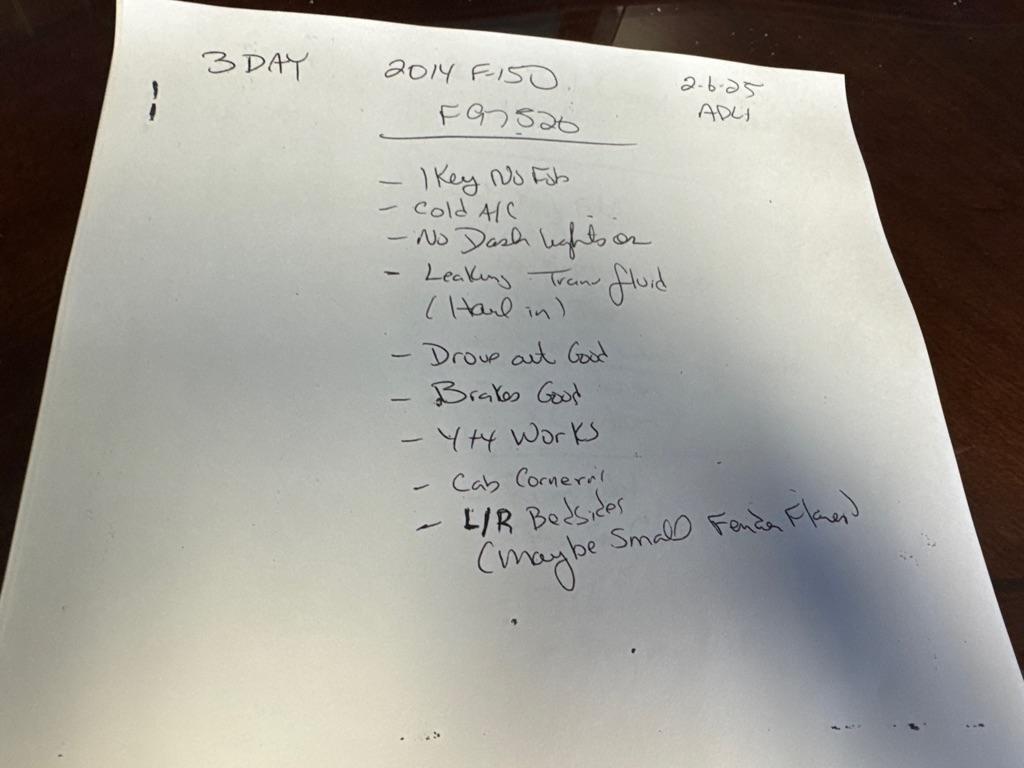 3 DAY 2014 F-150 2-6-25
F97520
- 1 Key No Fob
- Cold A/C
- No Dash lights on
- Leaking Trans fluid
(Haul in)
- Drove out Good
- Brakes Good
- 4x4 Works
- Cab Corners
- L/R Bedsides
(maybe Small Fender Flares)